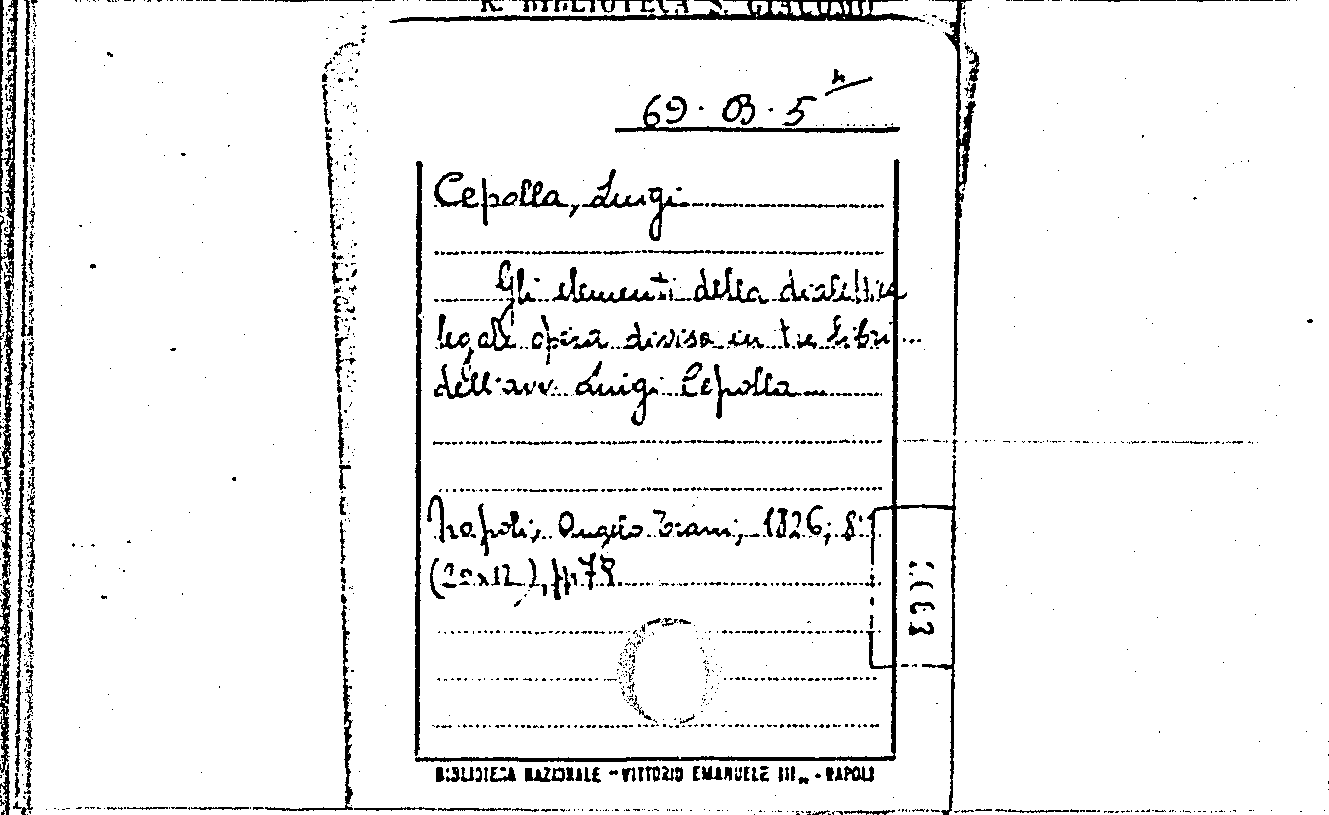 R. BIBLIOTECA S. GIACOMO
69. B. 5 4
Cepolla, Luigi
Gli elementi della dialettica
legale opera divisa in tre libri
dell'avv. Luigi Cepolla
Napoli, Angelo Trani, 1826; 8°
(20x12), pp. 78.
BIBLIOTECA NAZIONALE "VITTORIO EMANUELE III" - NAPOLI